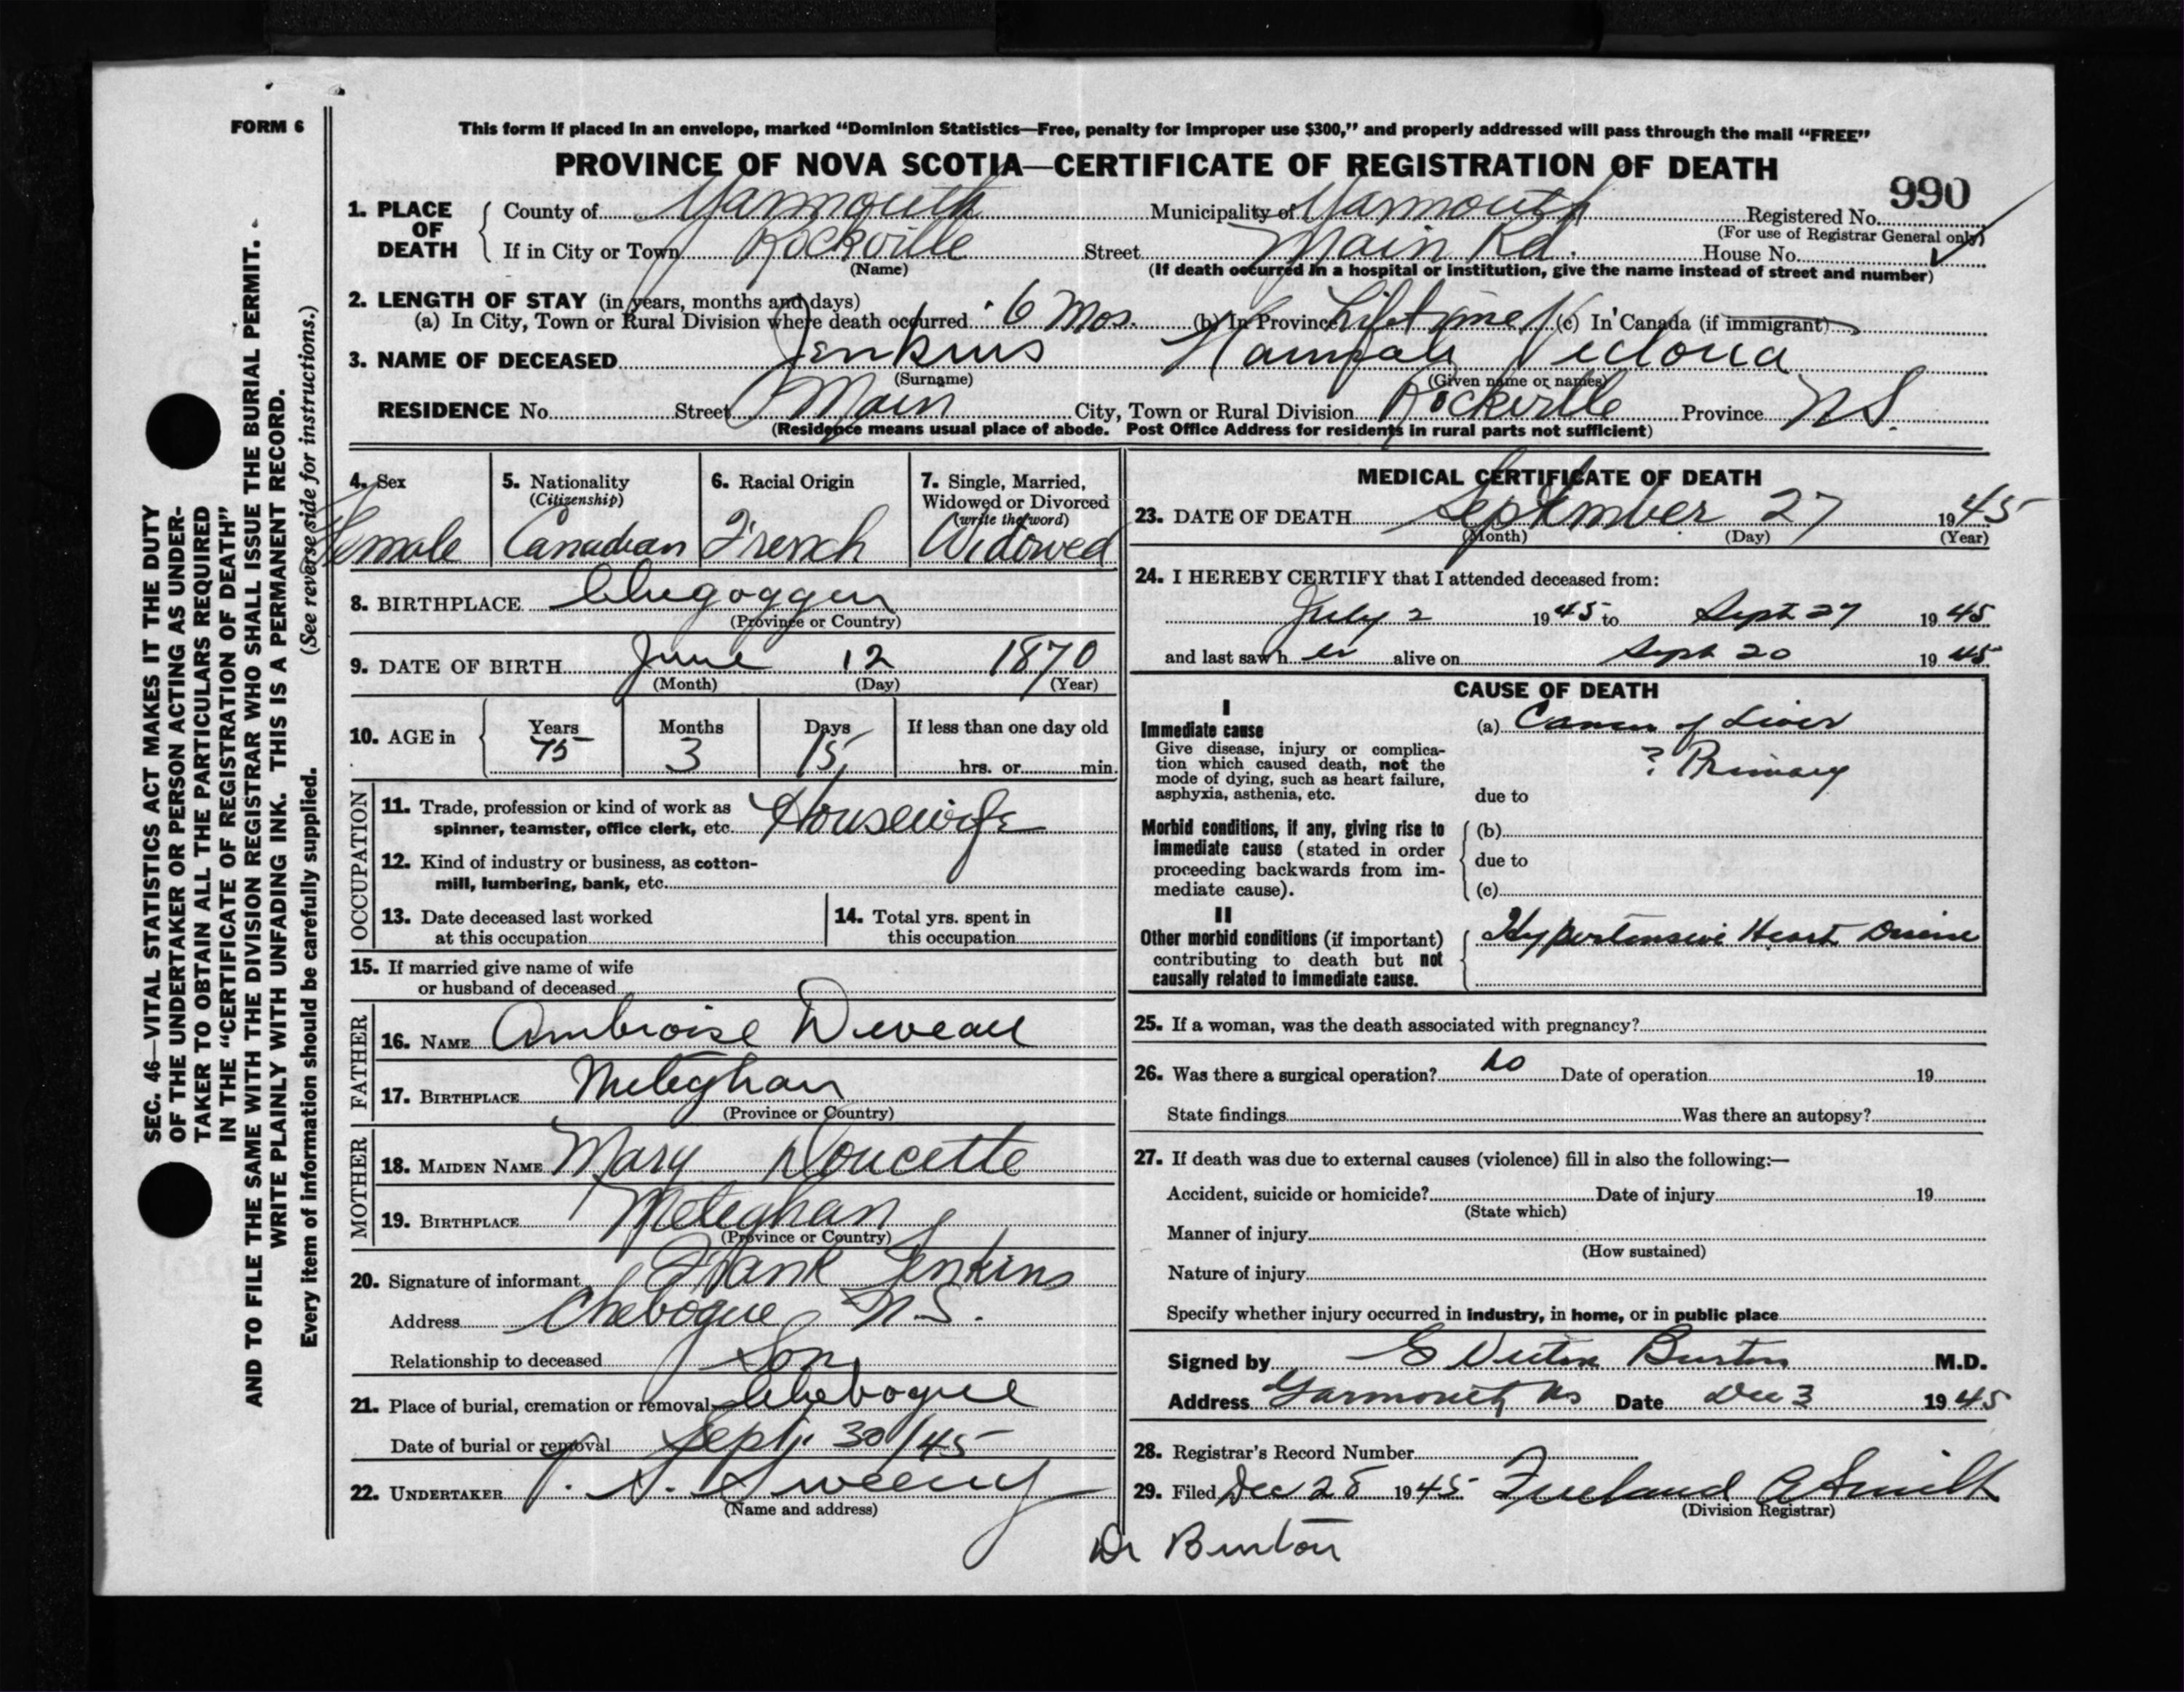 FORM 6
This form if placed in an envelope, marked "Dominion Statistics—Free, penalty for improper use $300," and properly addressed will pass through the mail "FREE"
PROVINCE OF NOVA SCOTIA—CERTIFICATE OF REGISTRATION OF DEATH
990
1. PLACE OF DEATH County of Yarmouth Municipality of Yarmouth Registered No.
(For use of Registrar General only)
If in City or Town Rockville Street Main Rd. House No.
(Name) (If death occurred in a hospital or institution, give the name instead of street and number)
2. LENGTH OF STAY (in years, months and days)
(a) In City, Town or Rural Division where death occurred 6 Mos. (b) In Province Lifetime (c) In Canada (if immigrant)
3. NAME OF DECEASED Jenkins Victoria
(Surname) (Given name or names)
RESIDENCE No. Street Main City, Town or Rural Division Rockville Province N.S.
(Residence means usual place of abode. Post Office Address for residents in rural parts not sufficient)
4. Sex
Female
5. Nationality
(Citizenship)
Canadian
6. Racial Origin
French
7. Single, Married,
Widowed or Divorced
(write the word)
Widowed
8. BIRTHPLACE Chegoggin
(Province or Country)
9. DATE OF BIRTH June 12 1870
(Month) (Day) (Year)
10. AGE in Years Months Days If less than one day old
75 3 15 hrs. or min.
OCCUPATION
11. Trade, profession or kind of work as
spinner, teamster, office clerk, etc. Housewife
12. Kind of industry or business, as cotton-
mill, lumbering, bank, etc.
13. Date deceased last worked
at this occupation
14. Total yrs. spent in
this occupation
15. If married give name of wife
or husband of deceased
FATHER
16. NAME Ambroise Deveau
17. BIRTHPLACE Meteghan
(Province or Country)
MOTHER
18. MAIDEN NAME Mary Doucette
19. BIRTHPLACE Meteghan
(Province or Country)
20. Signature of informant Frank Jenkins
Address Chebogue N.S.
Relationship to deceased Son
21. Place of burial, cremation or removal Chebogue
Date of burial or removal Sept. 30/45
22. UNDERTAKER V. S. Sweeny
(Name and address)
MEDICAL CERTIFICATE OF DEATH
23. DATE OF DEATH September 27 1945
(Month) (Day) (Year)
24. I HEREBY CERTIFY that I attended deceased from:
July 2 1945 to Sept 27 1945
and last saw h er alive on Sept 20 1945
CAUSE OF DEATH
I
Immediate cause
Give disease, injury or complica-
tion which caused death, not the
mode of dying, such as heart failure,
asphyxia, asthenia, etc.
(a) Cancer of Liver
? Primary
due to
Morbid conditions, if any, giving rise to
immediate cause (stated in order
proceeding backwards from im-
mediate cause).
(b)
due to
(c)
II
Other morbid conditions (if important)
contributing to death but not
causally related to immediate cause.
Hypertensive Heart Disease
25. If a woman, was the death associated with pregnancy?
26. Was there a surgical operation? no Date of operation 19
State findings Was there an autopsy?
27. If death was due to external causes (violence) fill in also the following:—
Accident, suicide or homicide? Date of injury 19
(State which)
Manner of injury
(How sustained)
Nature of injury
Specify whether injury occurred in industry, in home, or in public place
Signed by Burton M.D.
Address Yarmouth NS Date Dec 3 1945
28. Registrar's Record Number
29. Filed Dec 28 1945 Freeland A Smith
(Division Registrar)
Dr Burton
SEC. 46—VITAL STATISTICS ACT MAKES IT THE DUTY
OF THE UNDERTAKER OR PERSON ACTING AS UNDER-
TAKER TO OBTAIN ALL THE PARTICULARS REQUIRED
IN THE "CERTIFICATE OF REGISTRATION OF DEATH"
AND TO FILE THE SAME WITH THE DIVISION REGISTRAR WHO SHALL ISSUE THE BURIAL PERMIT.
WRITE PLAINLY WITH UNFADING INK. THIS IS A PERMANENT RECORD.
Every item of information should be carefully supplied. (See reverse side for instructions.)